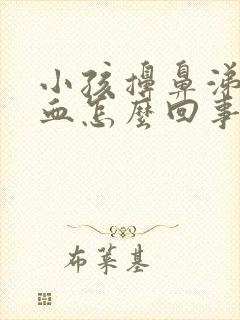 小孩擤鼻涕
血怎麼回事
布莱基